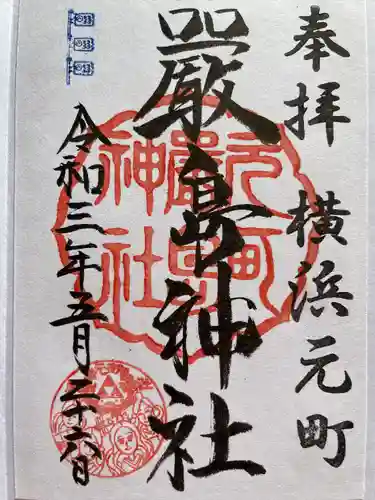 奉拝 横浜元町
嚴島神社
令和三年五月二十六日
元町
嚴島
神社